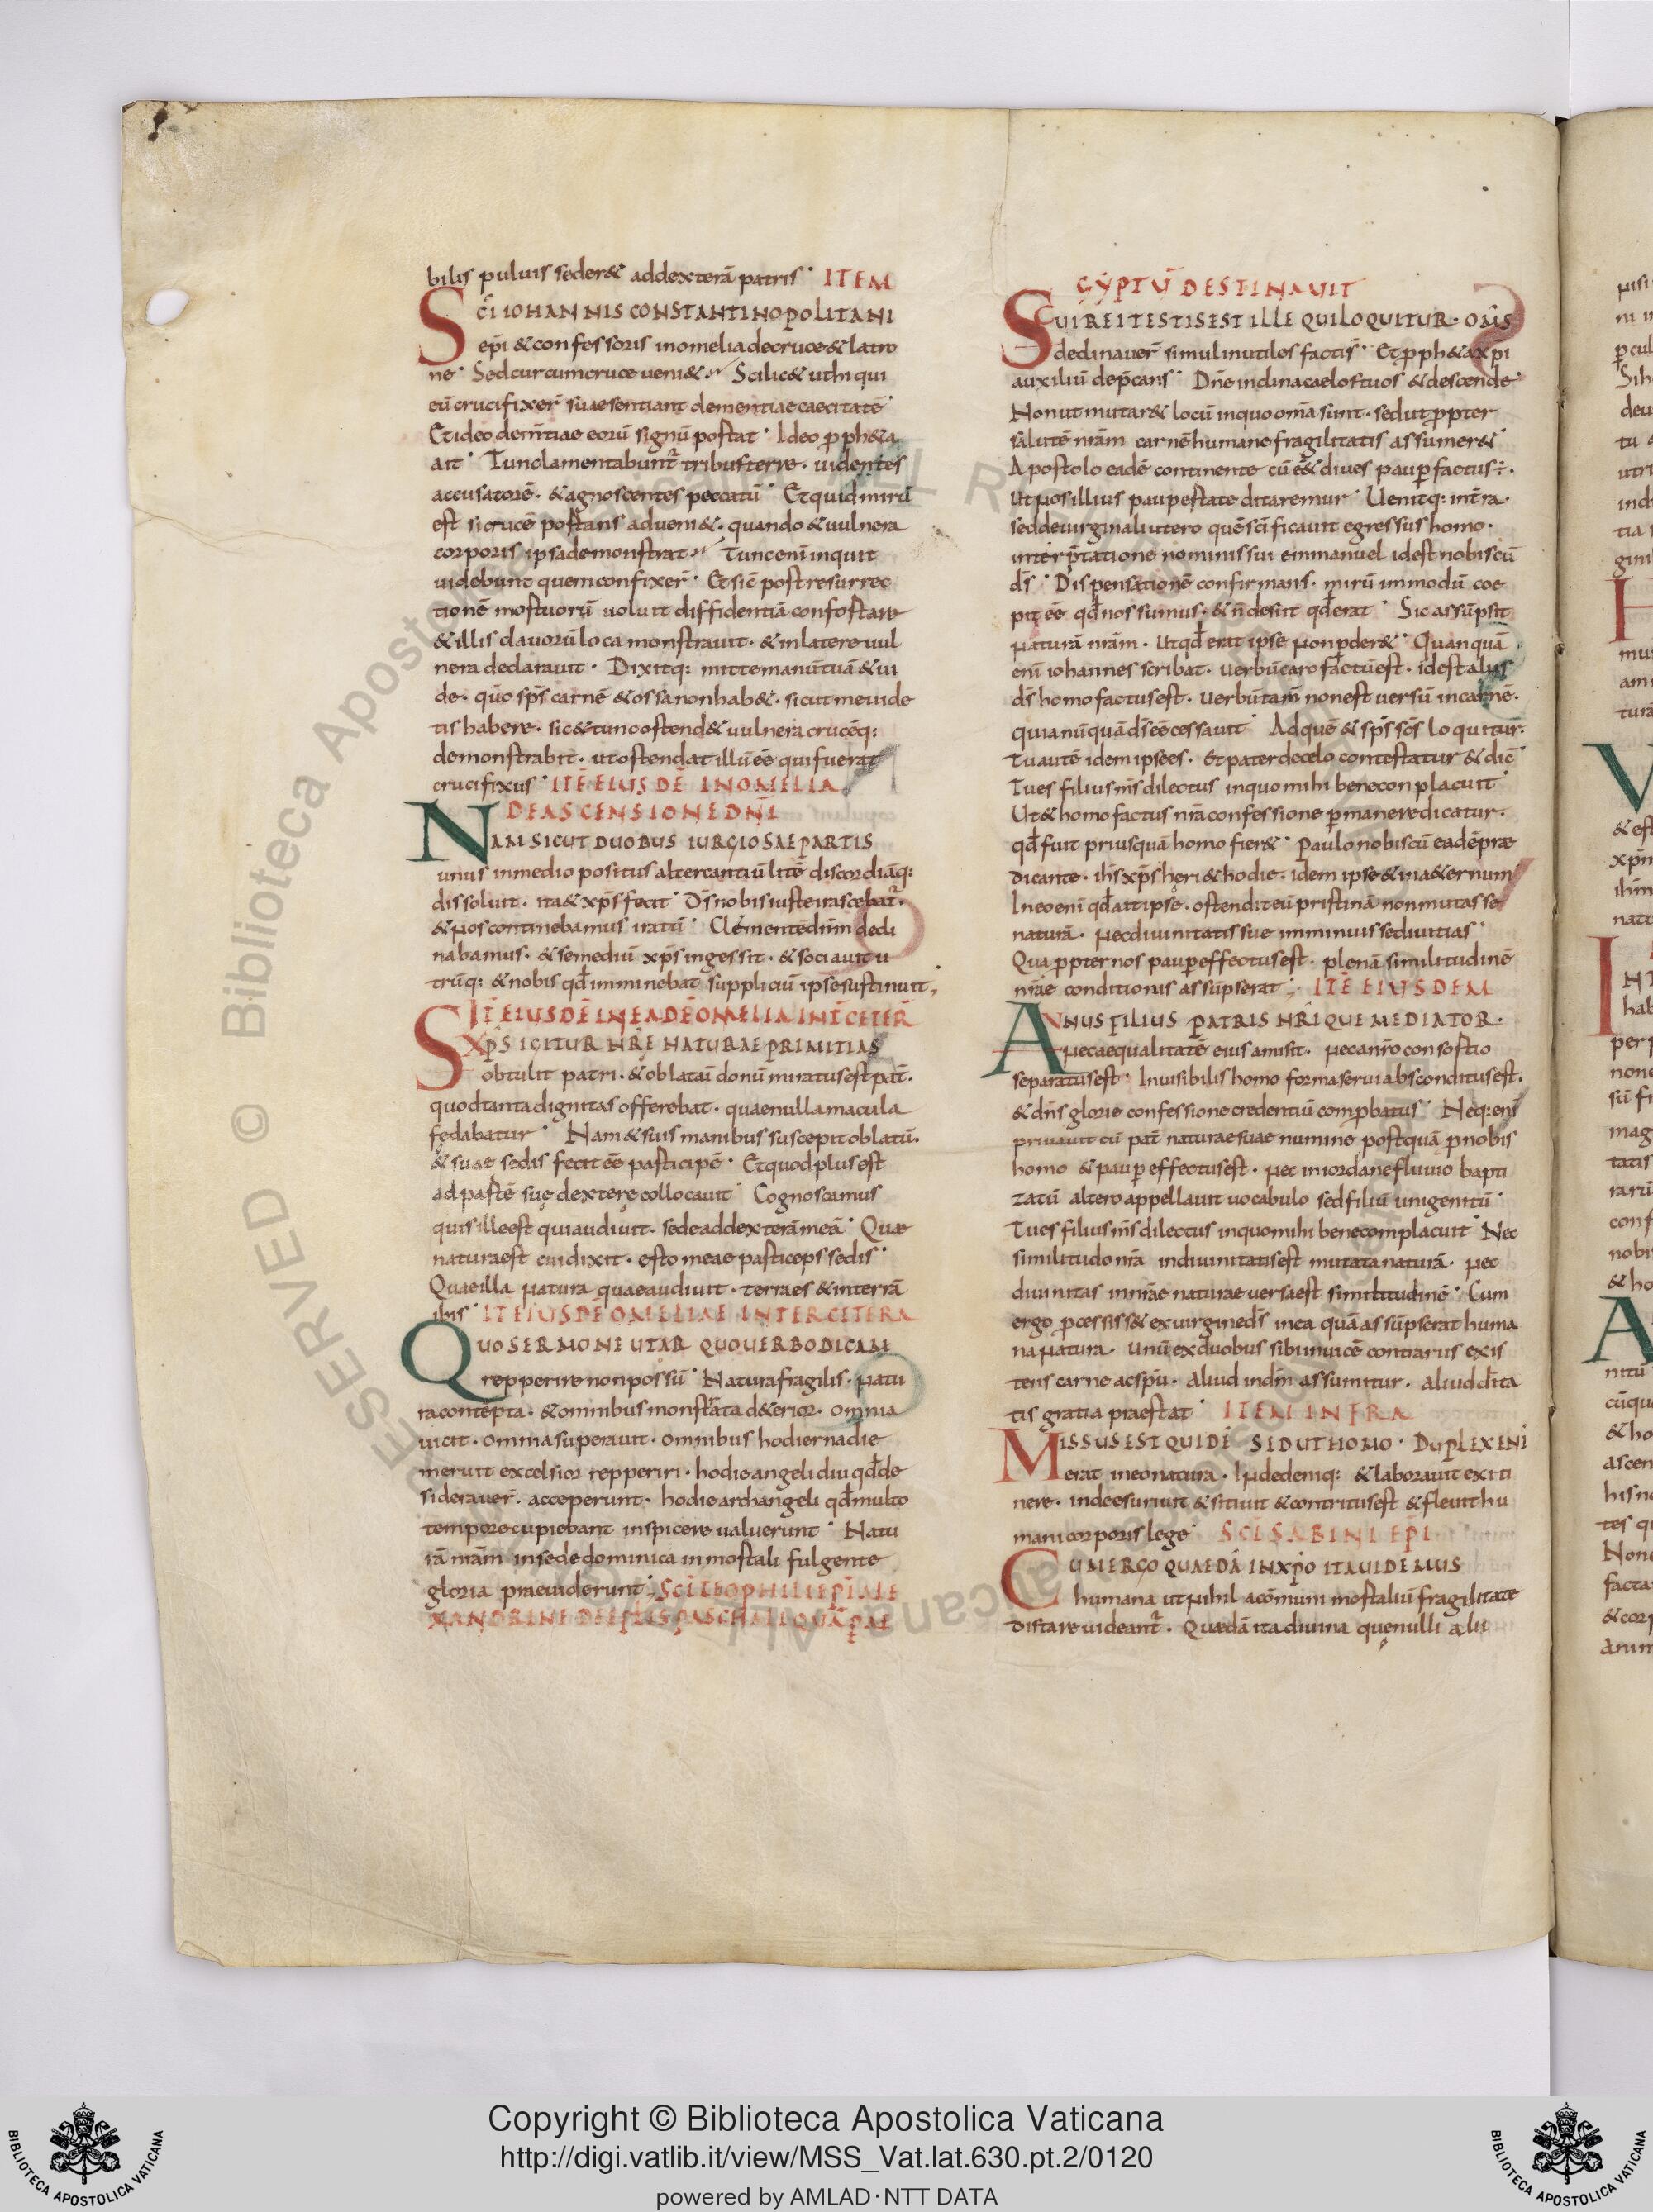 bilis puluis seder& addexterā patris · ITEM
SC̄I IOHANNIS CONSTANTINOPOLITANI
ep̄i & confessoris inomelia decruce & latro
ne · Sed cur cum cruce ueni& ·,, Scilic& uthi qui
eū crucifixer̄ suae sentiant dementiae caecitatē ·
Et ideo dem̄tiae eorū signū portat · Ideo p̄ph&a
ait · Tunc lamentabunt̄ tribus terre · uidentes
accusatorē · & agnoscentes peccatū · Et quid mirū
est si crucē portans adueni& · quando & uulnera
corporis ipsa demonstrat ·,, Tunc enī inquit
uidebunt quem confixer̄ · Et sic̄ post resurrec
tionē mortuorū uoluit diffidentiā confortare
& illis clauorū loca monstrauit · & in latere uul
nera declarauit · Dixitq: mitte manū tuā & ui
de · qūo sp̄s carnē & ossa non hab& · sicut me uide
tis habere · sic & tunc ostend& uulnera crucēq:
demonstrabit · ut ostendat illū ēē qui fuerat
crucifixus · ITĒ EIUSDĒ INOMELIA
DE ASCENSIONE DN̄I
NAM SICUT DUOBUS IURGIOSAE PARTIS
unus inmedio positus altercantiū litē discordiāq:
dissoluit · ita & xp̄s fecit · D̄s nobis iuste irascebat̄ ·
& nos continebamus iratū · Clementē dn̄m decli
nabamus · & se mediū xp̄s ingessit · & sociauit u
trūq: & nobis qd̄ imminebat suppliciū ipse sustinuit ·,
ITĒ EIUSDĒ IN EADĒ OMELIA INT̄ CETER̄
SXP̄S IGITUR NR̄E NATURAE PRIMITIAS
obtulit patri · & oblatam donū miratus est pat̄ ·
quod tanta dignitas offerebat · quae nulla macula
fędabatur · Nam & suis manibus suscepit oblatū ·
& suae sedis fecit ēē participē · Et quod plus est
ad partē suę dexterę collocauit · Cognoscamus
quis ille est qui audiuit · sede ad dexterā meā · Quae
natura est cui dixit · esto meae particeps sedis ·
Quae illa natura quae audiuit · terra es & in terrā
ibis · ITĒ EIUSDE OMELIAE INTER CETERA
QUO SERMONE UTAR QUO UERBO DICAM
repperire non possū · Natura fragilis · natu
ra contēpta · & omnibus monstrata d&erior · omnia
uicit · omnia superauit · omnibus hodierna die
meruit excelsior repperiri · hodie angeli diu qd̄ de
siderauer̄ · acceperunt · hodie archangeli qd̄ multo
tempore cupiebant inspicere ualuerunt · Natu
rā nr̄am in sede dominica inmortali fulgente
gloria praeuiderunt ·, SC̄I TEOPHILI EPĪ ALE
XANDRINE DE EPL̄IS PASCHALI QUĀ P̄ AE
GYPTŪ DESTINAUIT
SCUI REI TESTIS EST ILLE QUI LOQUITUR · OM̄S
declinauer̄ simul inutiles factis̄ · Et p̄ph&a xp̄i
auxiliū dep̄cans · Dn̄e inclina caelos tuos & descende
Non ut mutar& locū in quo om̄a sunt · sed ut p̄pter
salutē nr̄am carnē humane fragilitatis assumer& ·
Apostolo eadē continente cū ē& diues paup̄ factus ÷ ·
ut nos illius paupestate ditaremur · Uenitq: in t̄ra ·
sed de uirginali utero quē sc̄ificauit egressus homo ·
interp̄tatione nominis sui emmanuel id est nobiscū
d̄s · Dispensationē confirmans · mirū im modū coe
pit ēē qd̄ nos sumus · & n̄ desiit qd̄ erat · Sic assūpsit
naturā nr̄am · ut qd̄ erat ipse non p̄der& · Quanquā
enī iohannes scribat · uerbū caro factū est · id est alus
d̄s homo factus est · uerbū tam̄ non est uersū in carnē ·
quia nūquā d̄s ēē cessauit · Ad quē & sp̄s sc̄s loquitur:
Tu autē idem ipse es · Et pater de celo contestatur & dic̄
Tu es filius m̄s dilectus in quo mihi bene conplacuit ·
Ut & homo factus nr̄a confessione p̄manere dicatur ·
qd̄ fuit priusquā homo fier& · Paulo nobiscū eadē prae
dicante · ih̄s xp̄s heri & hodie · idem ipse & in a&ernum
In eo enī qd̄ ait ipse · ostendit eū pristinā non mutasse
naturā · nec diuinitatis sue imminuisse diuitias ·
Qua p̄pter nos paup̄ effectus est · plenā similitudinē
nr̄ae conditionis assūpserat ·, ITĒ EIUSDEM
UNUS FILIUS PATRIS NR̄IQUE MEDIATOR ·
nec aequalitatē eius amisit · nec a nr̄o consortio
separatus est · Inuisibilis homo forma serui absconditus est ·
& dn̄s glorie confessione credentiū comp̄batus · Neq: enī
priuauit eū pat̄ naturae suae numine postquā p̄ nobis
homo & paup̄ effectus est · nec in iordane fluuio bapti
zatū altero appellauit uocabulo sed filiū unigenitū ·
Tu es filius m̄s dilectus in quo mihi bene complacuit · Nec
similitudo nr̄a in diuinitatis est mutata naturā · nec
diuinitas in nr̄ae naturae uersa est similitudinē · Cum
ergo p̄cessiss& ex uirgine d̄s in ea quā assūpserat huma
na natura · unū ex duobus sibi inuicē contrariis exis
tens carne ac sp̄u · aliud in dn̄m assumitur · aliud d̄ita
tis gratia praestat · ITEM INFRA
MISSUS EST QUIDĒ SED UT HOMO · DUPLEX ENĪ
erat in eo natura · Inde deniq: & laborauit ex iti
nere · inde esuriuit & sitiuit & contritus est & fleuit hu
mani corporis lege · SC̄I SABINI EPĪ
CUM ERGO QUAEDĀ IN XP̄O ITA UIDEMUS
humana ut nihil a cōmuni mortaliū fragilitate
distare uideant̄ · Quaedā ita diuina quę nulli alii